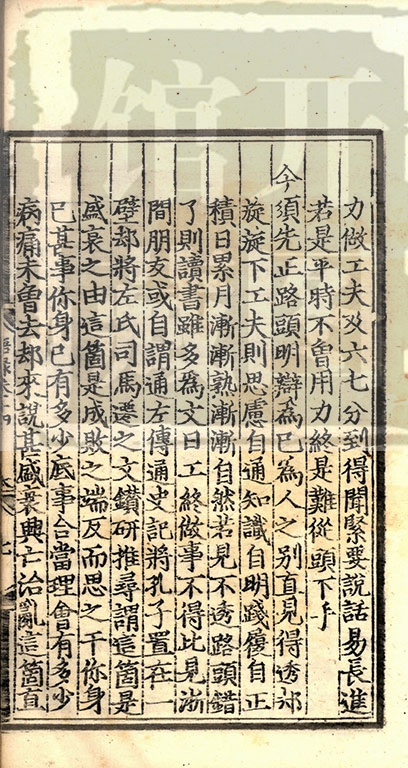 力做工夫及六七分到得聞緊要說話易長進
若是平時不曾用力終是難從頭下手
今須先正路頭明辯為已為人之別直見得透却
旋旋下工夫則思慮自通知識自明踐履自正
積日累月漸漸熟漸漸自然若見不透路頭錯
了則讀書雖多為文日工終做事不得比見浙
間朋友或自謂通左傳通史記將孔子置在一
壁却將左氏司馬遷之文鑚研推尋謂這箇是
盛衰之由這箇是成敗之端反而思之干你身
已甚事你身已有多少底事合當理會有多少
病痛未曾去却來說甚盛衰興亡治亂這箇直